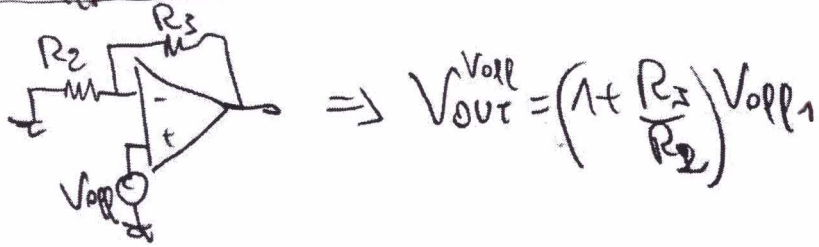 R3
R2
-
+
Voff
=> V_OUT^Voff = (1 + R3/R2) Voff1